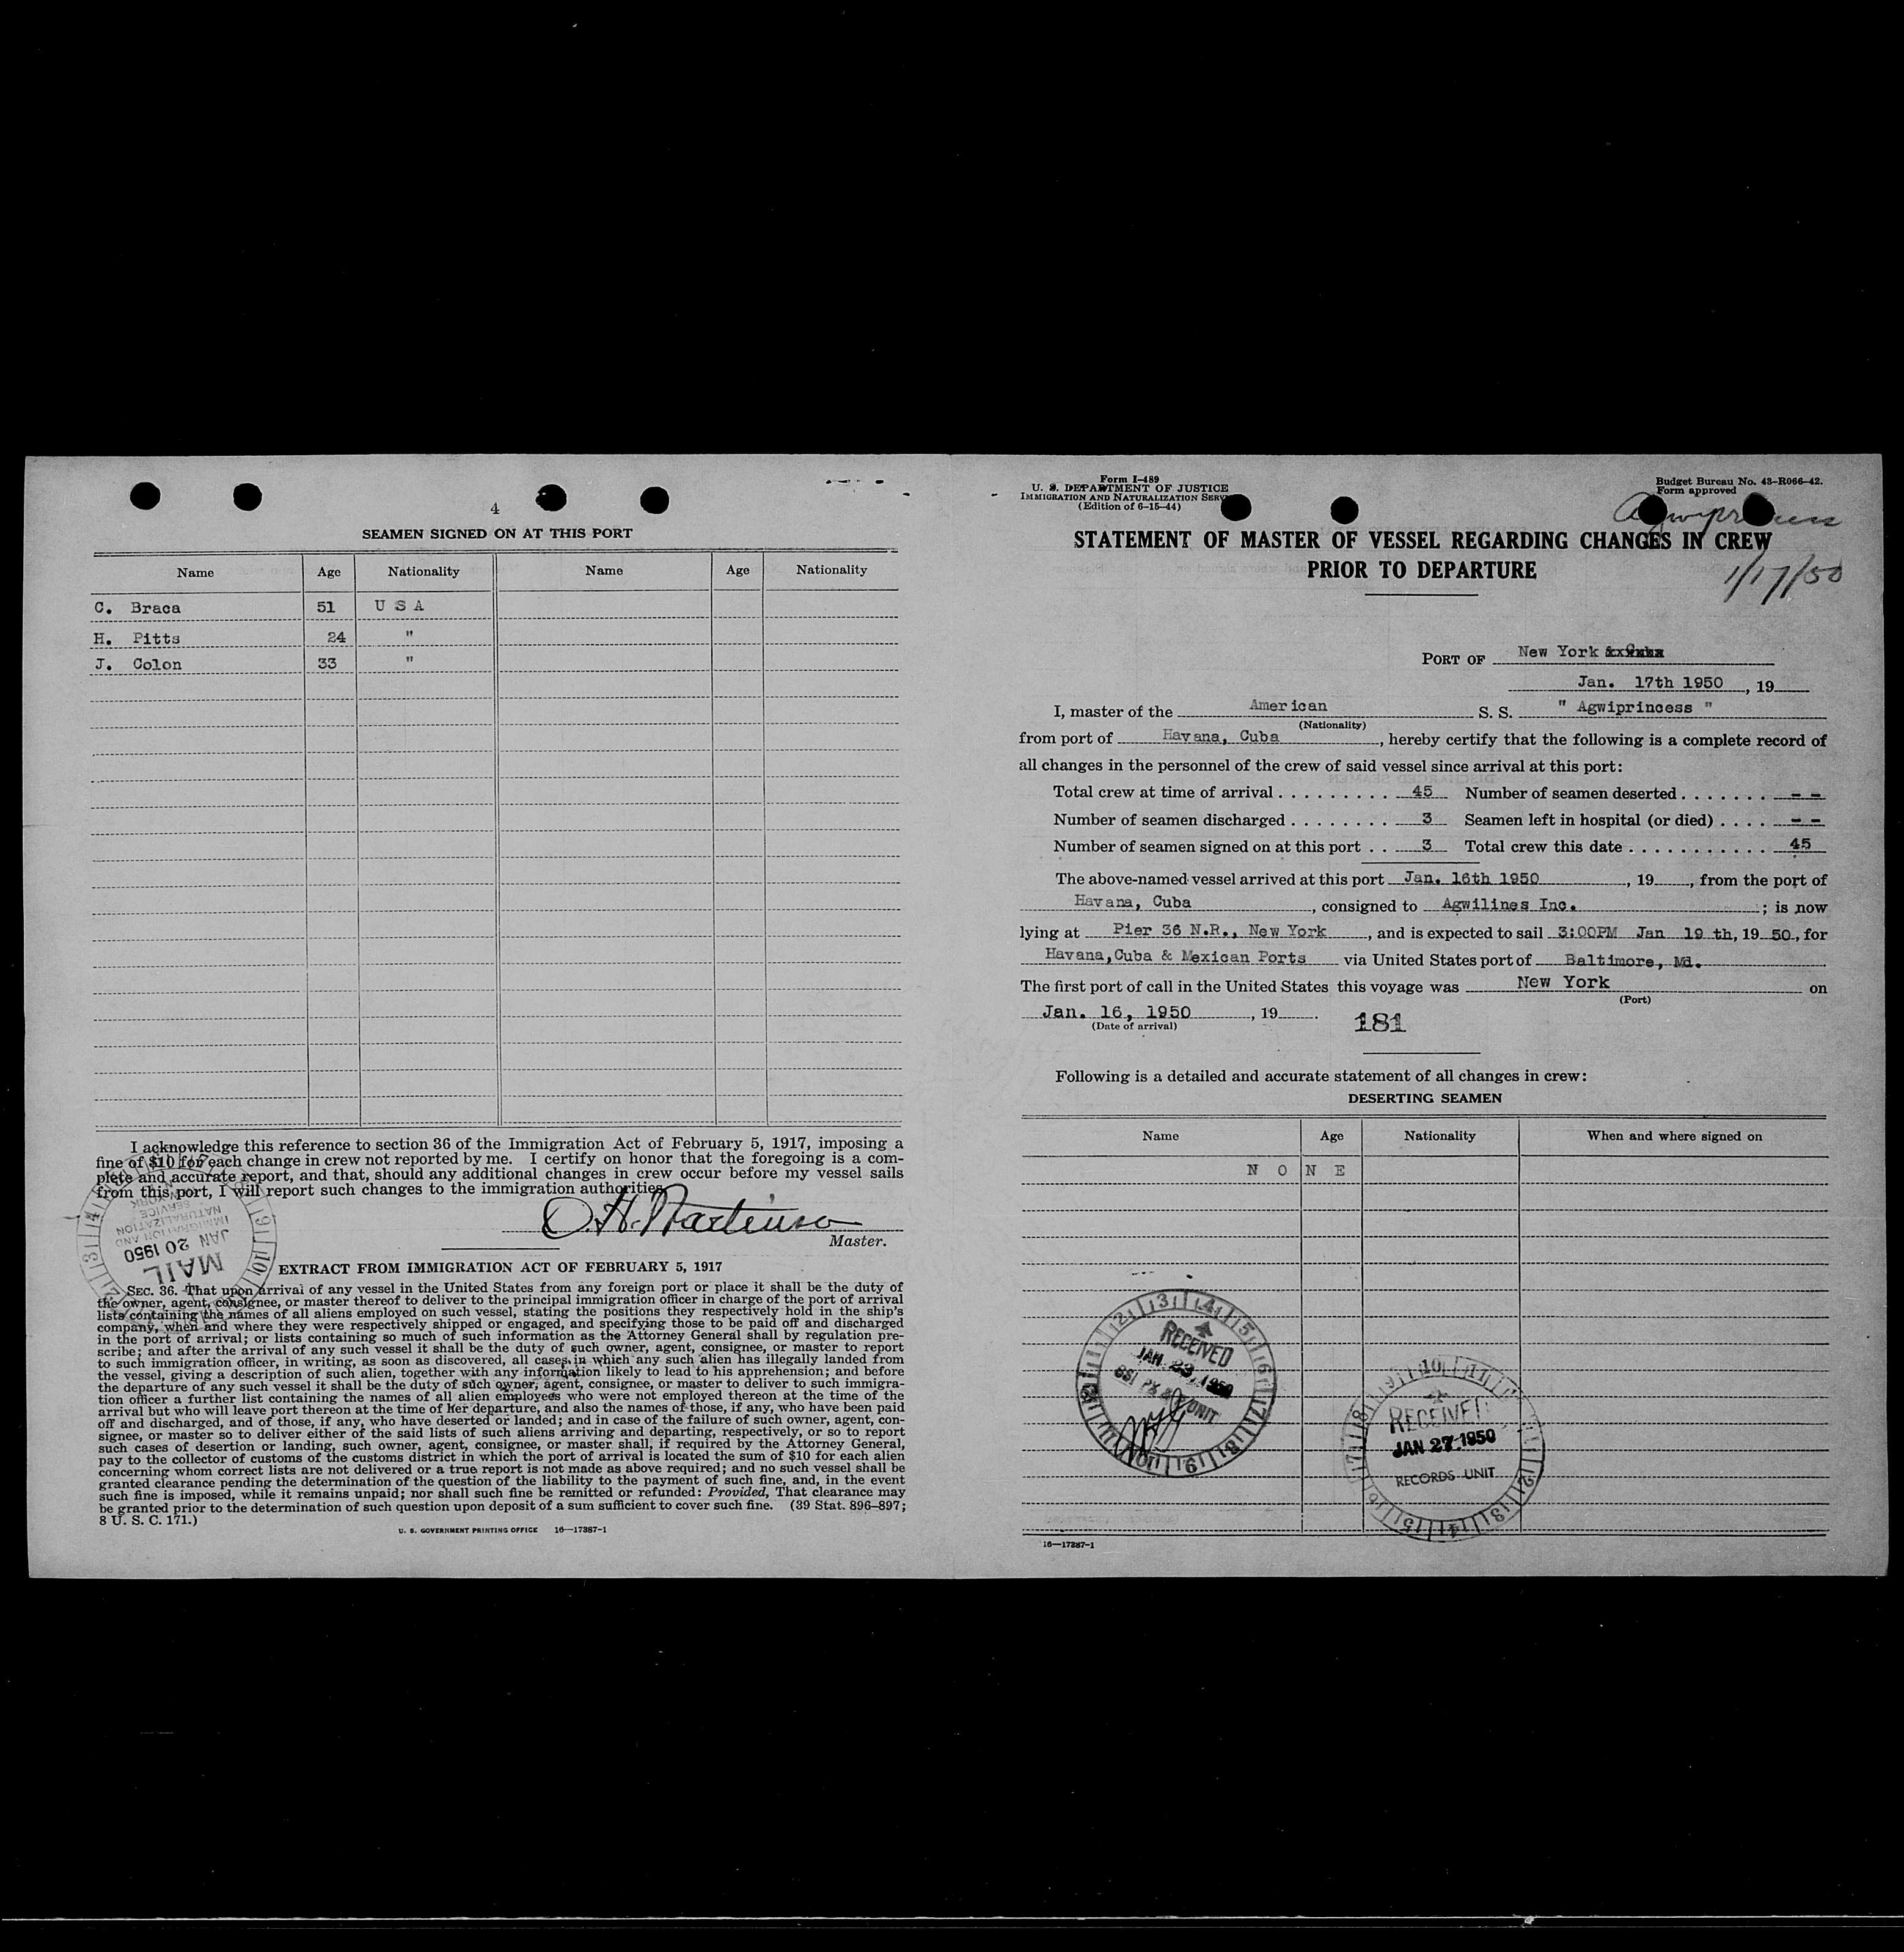 4
SEAMEN SIGNED ON AT THIS PORT
Name Age Nationality Name Age Nationality
C. Braca 51 U S A
H. Pitts 24 "
J. Colon 33 "
I acknowledge this reference to section 36 of the Immigration Act of February 5, 1917, imposing a
fine of $10 for each change in crew not reported by me. I certify on honor that the foregoing is a com-
plete and accurate report, and that, should any additional changes in crew occur before my vessel sails
from this port, I will report such changes to the immigration authorities.
O. H. Martinson
Master.
MAIL
JAN 20 1950
IMMIGRATION AND
NATURALIZATION
SERVICE
EXTRACT FROM IMMIGRATION ACT OF FEBRUARY 5, 1917
SEC. 36. That upon arrival of any vessel in the United States from any foreign port or place it shall be the duty of
the owner, agent, consignee, or master thereof to deliver to the principal immigration officer in charge of the port of arrival
lists containing the names of all aliens employed on such vessel, stating the positions they respectively hold in the ship's
company, when and where they were respectively shipped or engaged, and specifying those to be paid off and discharged
in the port of arrival; or lists containing so much of such information as the Attorney General shall by regulation pre-
scribe; and after the arrival of any such vessel it shall be the duty of such owner, agent, consignee, or master to report
to such immigration officer, in writing, as soon as discovered, all cases in which any such alien has illegally landed from
the vessel, giving a description of such alien, together with any information likely to lead to his apprehension; and before
the departure of any such vessel it shall be the duty of such owner, agent, consignee, or master to deliver to such immigra-
tion officer a further list containing the names of all alien employees who were not employed thereon at the time of the
arrival but who will leave port thereon at the time of her departure, and also the names of those, if any, who have been paid
off and discharged, and of those, if any, who have deserted or landed; and in case of the failure of such owner, agent, con-
signee, or master so to deliver either of the said lists of such aliens arriving and departing, respectively, or so to report
such cases of desertion or landing, such owner, agent, consignee, or master shall, if required by the Attorney General,
pay to the collector of customs of the customs district in which the port of arrival is located the sum of $10 for each alien
concerning whom correct lists are not delivered or a true report is not made as above required; and no such vessel shall be
granted clearance pending the determination of the question of the liability to the payment of such fine, and, in the event
such fine is imposed, while it remains unpaid; nor shall such fine be remitted or refunded: Provided, That clearance may
be granted prior to the determination of such question upon deposit of a sum sufficient to cover such fine. (39 Stat. 896–897;
8 U. S. C. 171.)
U. S. GOVERNMENT PRINTING OFFICE 16—17387-1
Form I-489
U. S. DEPARTMENT OF JUSTICE
IMMIGRATION AND NATURALIZATION SERV
(Edition of 6-15-44)
Budget Bureau No. 43-R066-42.
Form approved
Agwiprincess
1/17/50
STATEMENT OF MASTER OF VESSEL REGARDING CHANGES IN CREW
PRIOR TO DEPARTURE
PORT OF New York
Jan. 17th 1950, 19
I, master of the American S. S. " Agwiprincess "
(Nationality)
from port of Havana, Cuba, hereby certify that the following is a complete record of
all changes in the personnel of the crew of said vessel since arrival at this port:
Total crew at time of arrival . . . . . . . . . 45 Number of seamen deserted . . . . . . . - -
Number of seamen discharged . . . . . . . . 3 Seamen left in hospital (or died) . . . . - -
Number of seamen signed on at this port . . 3 Total crew this date . . . . . . . . . . . 45
The above-named vessel arrived at this port Jan. 16th 1950, 19, from the port of
Havana, Cuba, consigned to Agwilines Inc.; is now
lying at Pier 36 N.R., New York, and is expected to sail 3:00PM Jan 19 th, 19 50, for
Havana, Cuba & Mexican Ports via United States port of Baltimore, Md.
The first port of call in the United States this voyage was New York on
(Port)
Jan. 16, 1950, 19.
(Date of arrival)
181
Following is a detailed and accurate statement of all changes in crew:
DESERTING SEAMEN
Name Age Nationality When and where signed on
N O N E
RECEIVED
JAN 23, 1950
UNIT
RECEIVED
JAN 27 1950
RECORDS UNIT
16—17387-1